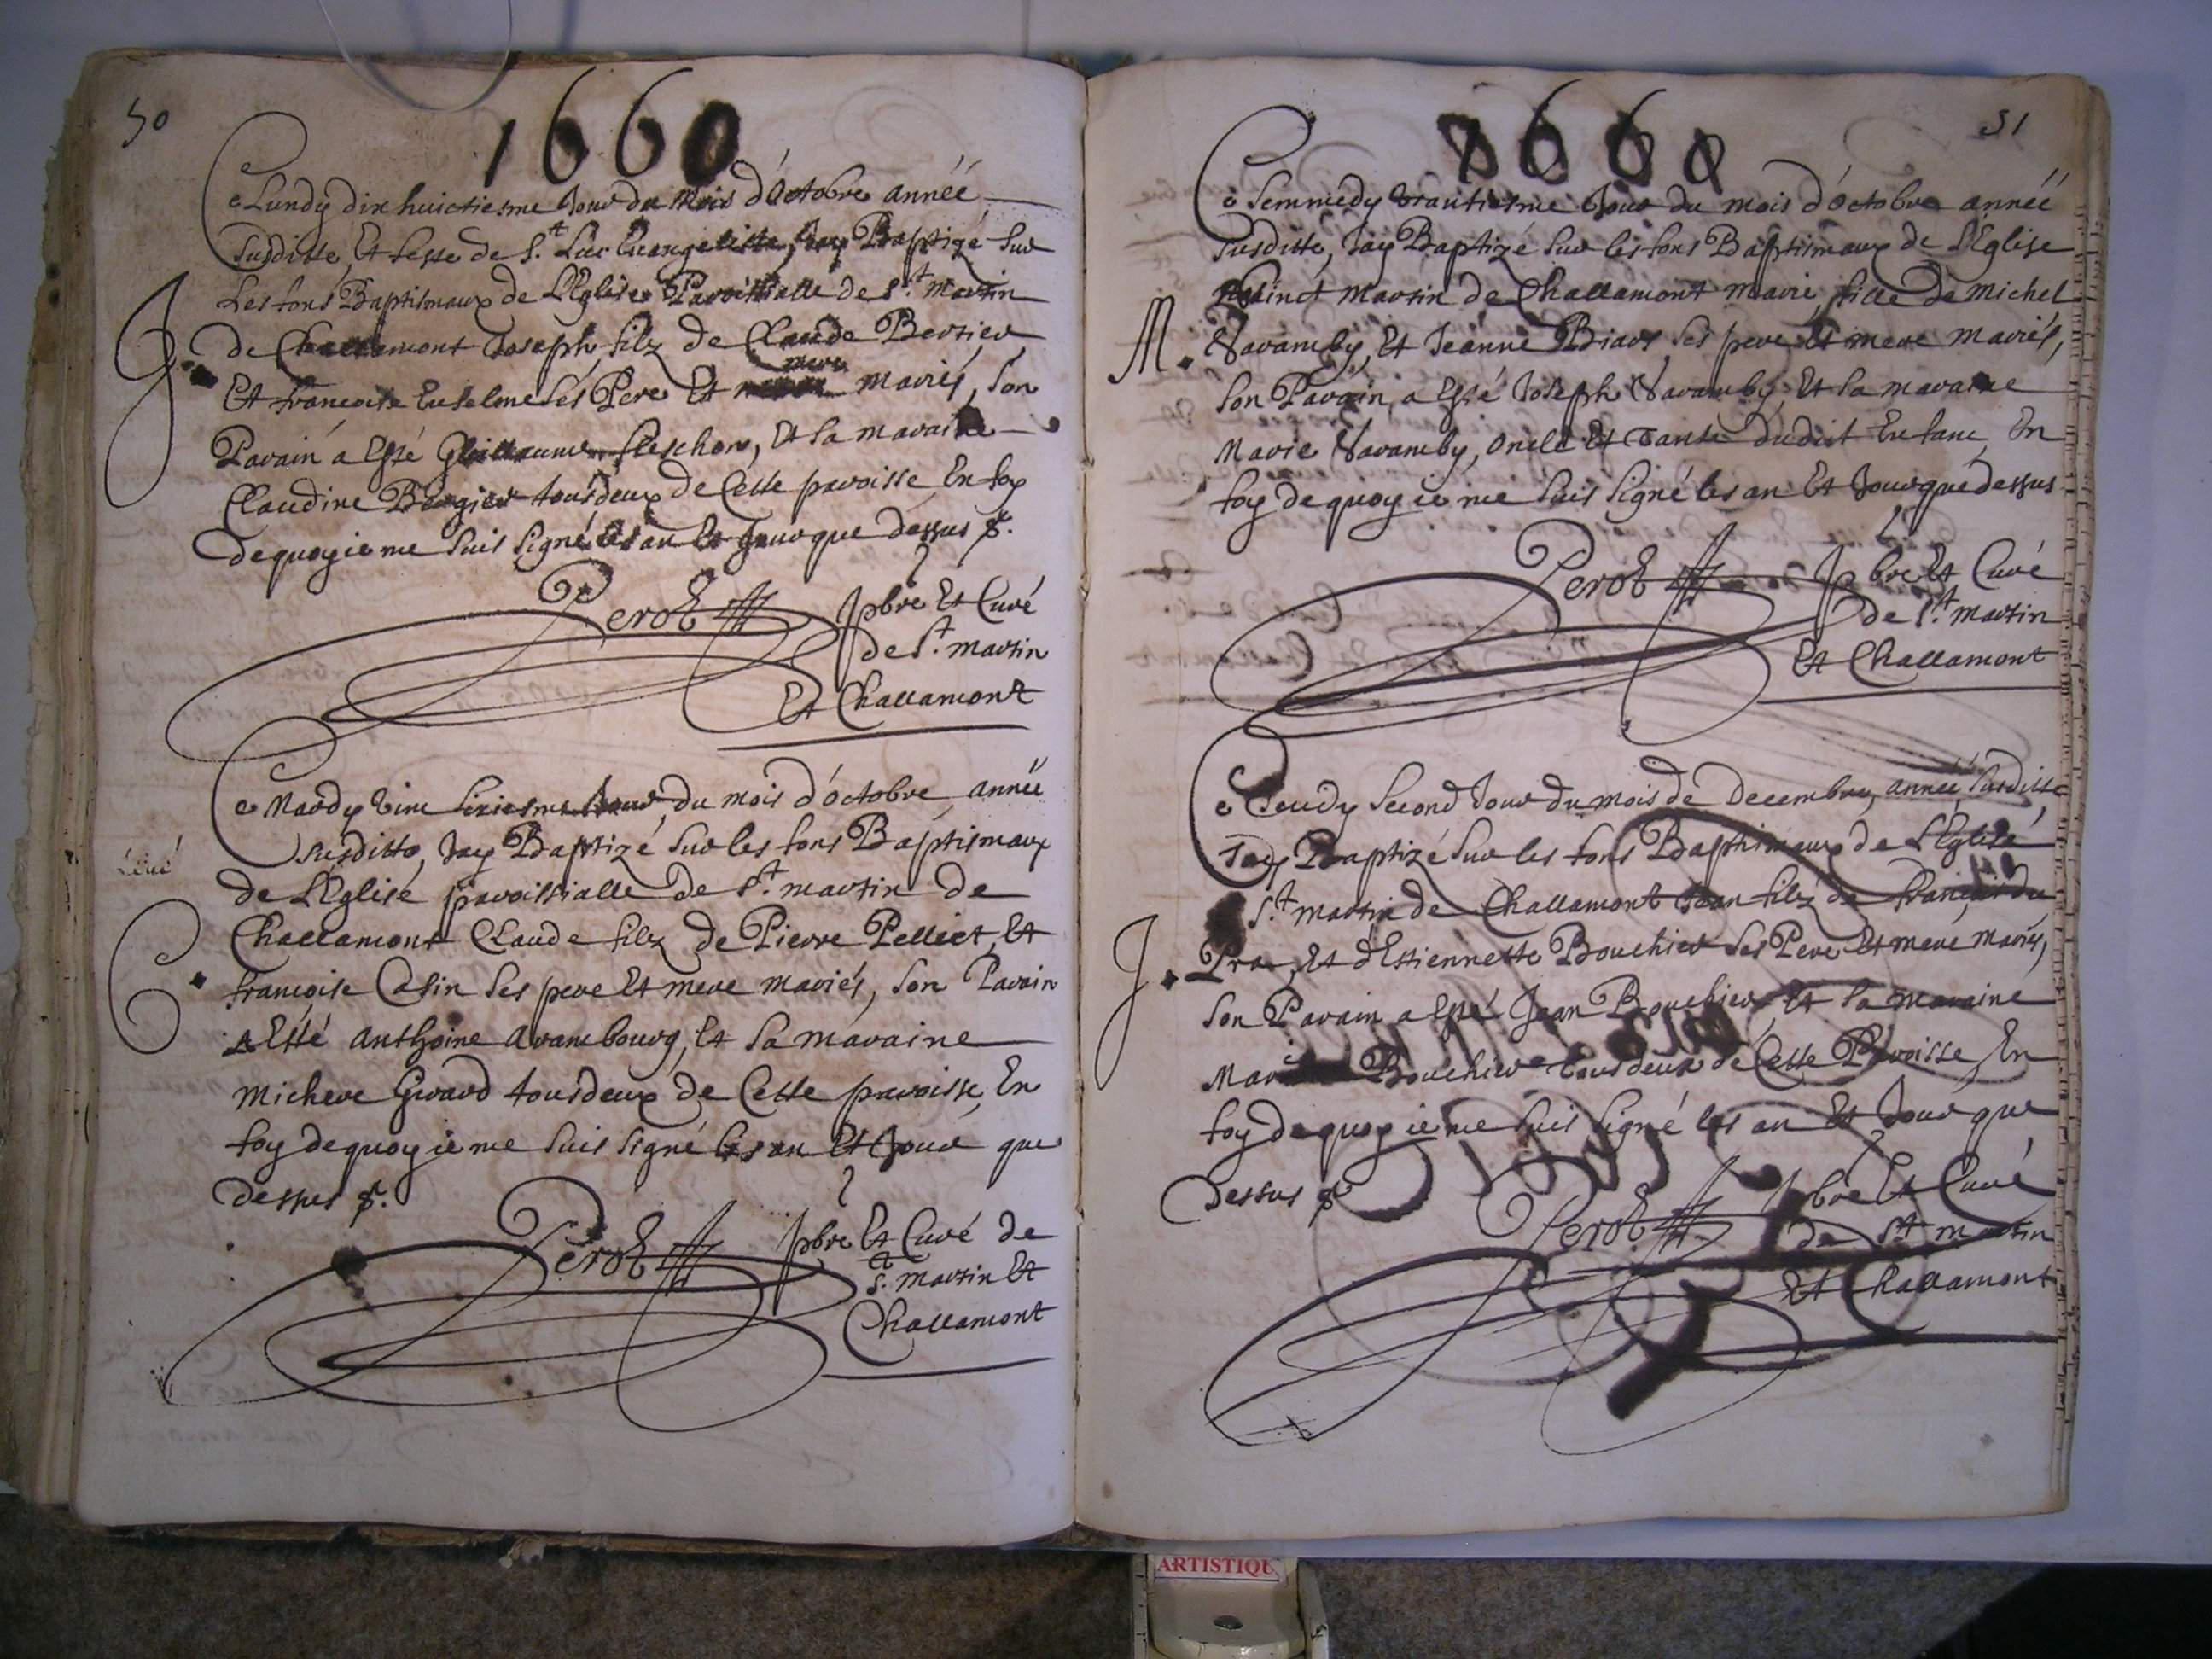 50
1660
Ce Lundy dix huictiesme Jour du Mois d'Octobre année
susditte, Et feste de S.t Luc Euangeliste, Jay Baptizé sur
Les fons Baptismaux de L'Eglise Paroissialle de S.t Martin
de Challamont Joseph, filz de Claude Bertier
Et francoise ses Pere Et mere mariés, son
Parain a Esté Guillaume, Et sa maraine
Claudine Bergier tous deux de Cette paroisse, En foy
de quoy ie me suis signé les an Et Jour que dessus &.
J.
Perot pbre Et Curé
de S.t martin
Et Challamont
Ce Mardy vint sixiesme Jour, du mois d'octobre, année
susditte, Jay Baptizé sur les fons Baptismaux
de L'Eglise paroissialle de S.t martin de
Challamont Claude filz de Pierre Pelliet, Et
francoise Casin ses pere Et mere mariés, son Parain
a Esté anthoine arambourg, Et sa maraine
Michere Girard tous deux de Cette paroisse, En
foy de quoy ie me suis signé les an Et Jour que
dessus &.
C.
Perot pbre Et Curé de
S.t martin Et
Challamont
51
1660
Ce semmedy trantiesme Jour du mois d'octobre année
susditte, Jay Baptizé sur les fons Baptismaux de L'Eglise
Sainct Martin de Challamont marie, fille de Michel
Varamby, Et Jeanne Biard ses pere Et mere mariés,
son Parain, a Esté Joseph Varamby, Et sa maraine
Marie Varamby, oncle Et Tante dudit Enfant, En
foy de quoy ie me suis signé les an Et Jour que dessus
M.
Perot pbre Et Curé
de S.t martin
Et Challamont
Ce Jeudy second Jour du mois de Decembre, année susditte
Jay Baptizé sur les fons Baptismaux de L'Eglise
S.t martin de Challamont Jean filz de francois du
Pra, Et d'Estiennette Bouchier ses Pere Et mere mariés,
son Parain a Esté Jean Bouchier, Et sa maraine
Bouchier tous deux de Cette Paroisse, En
foy de quoy ie me suis signé les an Et Jour que
dessus &
J.
Perot pbre Et Curé
de S.t martin
Et Challamont
ARTISTIQU